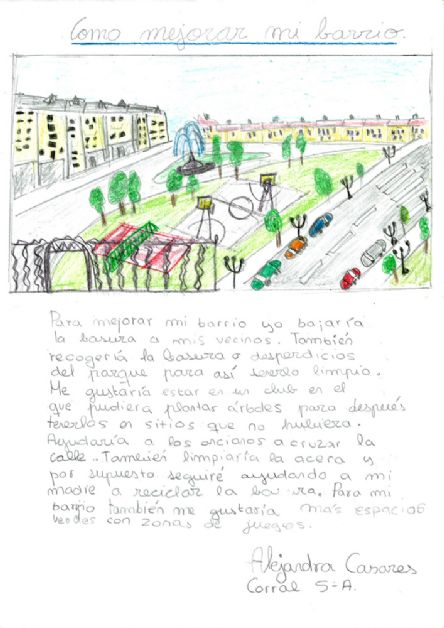 Como mejorar mi barrio.
Para mejorar mi barrio yo bajaría
la basura a mis vecinos. También
recogería la basura o desperdicios
del parque para así tenerlo limpio.
Me gustaría estar en un club en el
que pudiera plantar árboles para después
tenerlos en sitios que no hubiera.
Ayudaría a los ancianos a cruzar la
calle. También limpiaría la acera y
por supuesto seguiré ayudando a mi
madre a reciclar la basura. Para mi
barrio también me gustaría más espacios
verdes con zonas de juegos.
Alejandra Casares
Corral 5-A.